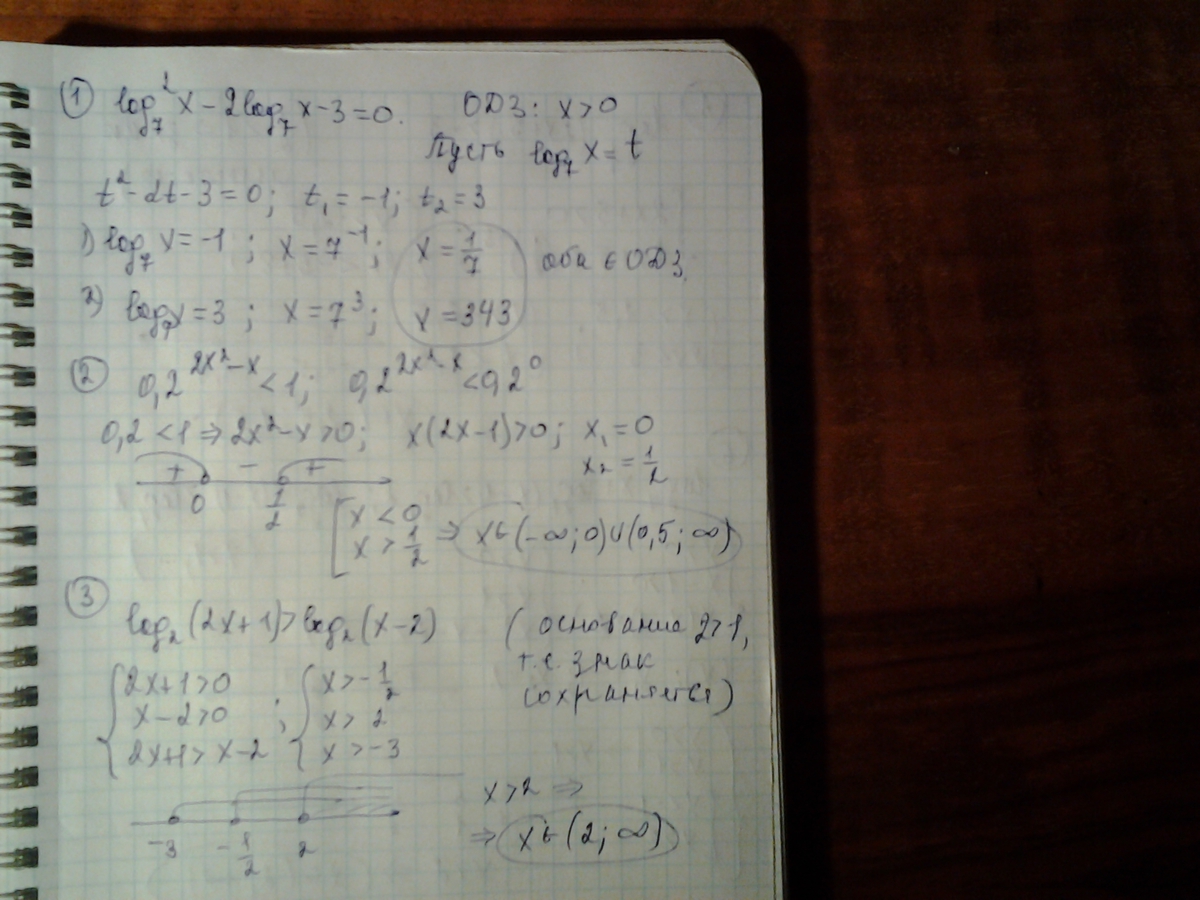 ① log₇²x − 2log₇x − 3 = 0. ОДЗ: x > 0
Пусть log₇x = t
t² − 2t − 3 = 0; t₁ = −1; t₂ = 3
1) log₇x = −1; x = 7⁻¹; x = 1/7 оба ∈ ОДЗ.
2) log₇x = 3; x = 7³; x = 343
② 0,2^(2x²−x) < 1; 0,2^(2x²−x) < 0,2⁰
0,2 < 1 ⇒ 2x² − x > 0; x(2x−1) > 0; x₁ = 0
x₂ = 1/2
+ − +
0 1/2
[ x < 0
x > 1/2 ⇒ x ∈ (−∞; 0) ∪ (0,5; ∞)
③
log₂(2x+1) > log₂(x−2) ( основание 2>1,
т.е. знак
сохраняется)
{ 2x+1>0 ; { x > −1/2
x−2>0 x > 2
2x+1 > x−2 x > −3
x > 2 ⇒
−3 −1/2 2
⇒ x ∈ (2; ∞)